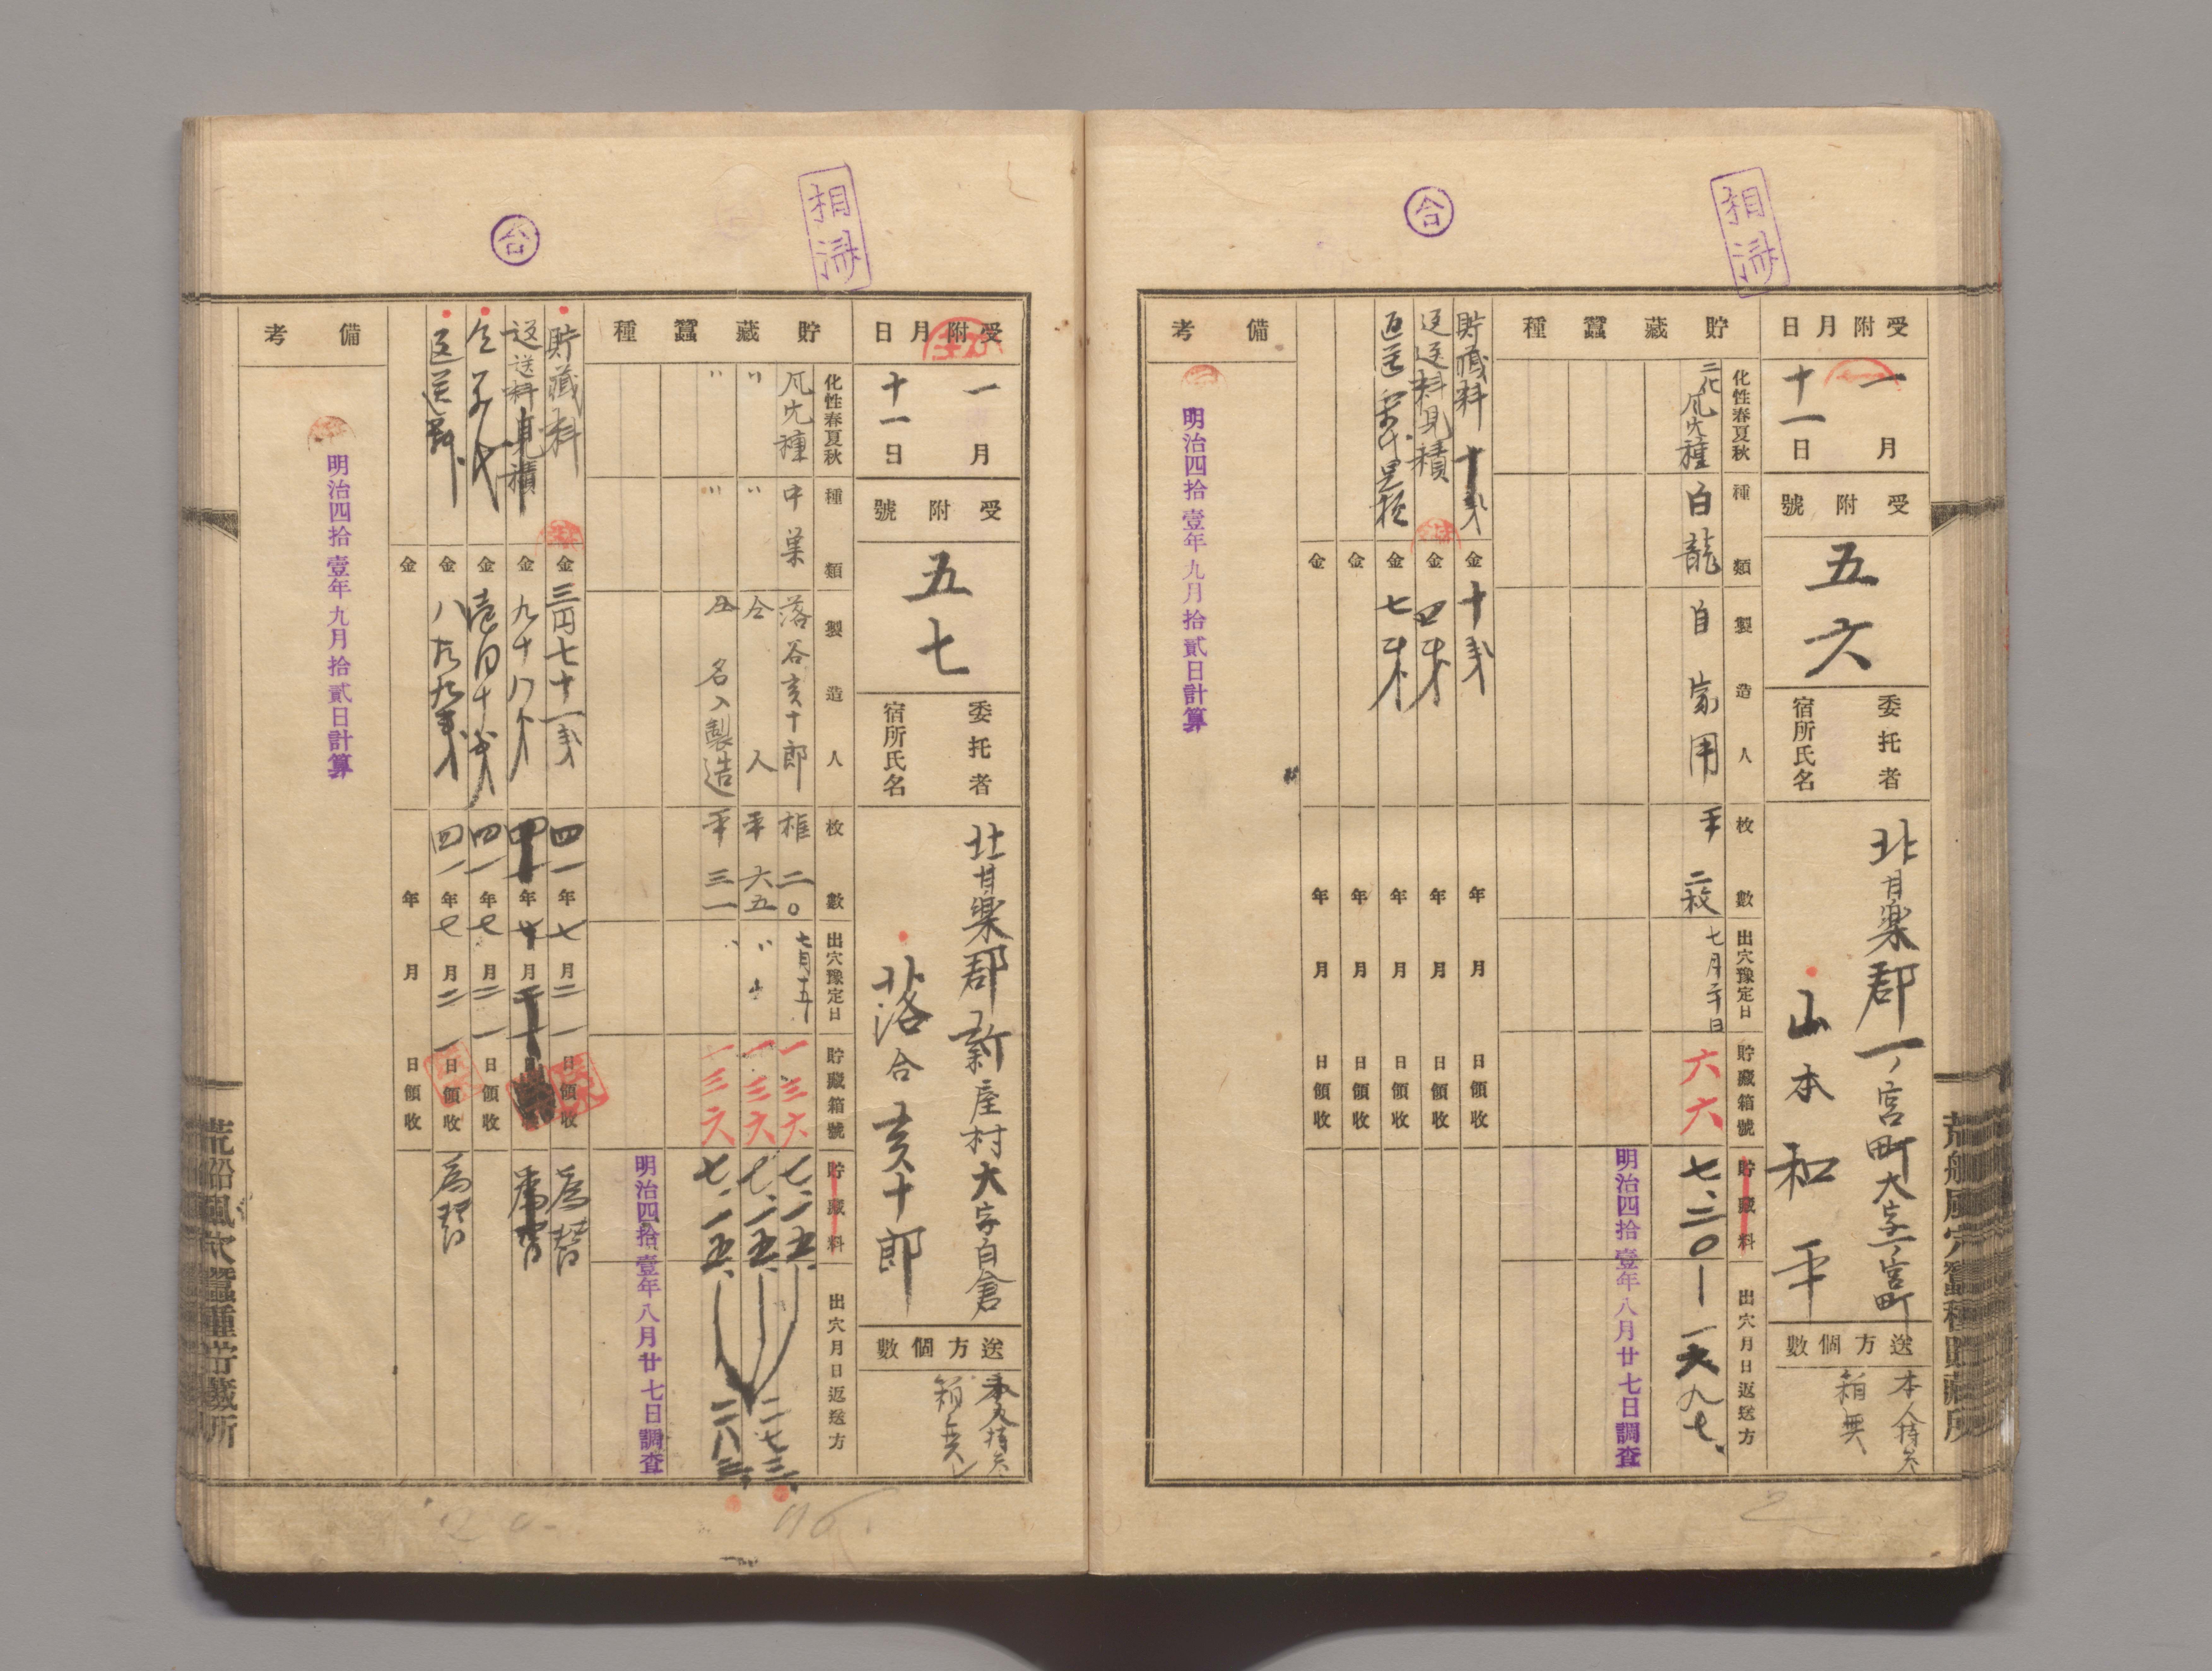 相済
合
受附月日
一月
十一日
受附號
五六
委托者
宿所氏名
北甘楽郡一ノ宮町大字一ノ宮町
山本和平
送方個數
本人持参
箱無
貯藏蠶種
化性春夏秋
種類
製造人
枚數
出穴豫定日
貯藏箱號
貯藏料
出穴月日返送方
二化風穴種
白龍
自家用
平二枚
七月二十日
六六
七、二〇
一九七、
明治四拾壹年八月廿七日調査
貯蔵料
金十
年月日領收
返送料見積
金四
年月日領收
返送
金七
年月日領收
金
年月日領收
金
年月日領收
備考
明治四拾壹年九月拾貳日計算
荒船風穴蠶種貯藏所
相済
合
受附月日
一月
十一日
受附號
五七
委托者
宿所氏名
北甘楽郡新屋村大字白倉
落合亥十郎
送方個數
本人持参
箱無シ
貯藏蠶種
化性春夏秋
種類
製造人
枚數
出穴豫定日
貯藏箱號
貯藏料
出穴月日返送方
風穴種
中巣
落谷亥十郎
框二〇
七月十五
一三六
七、一五、
〃
〃
仝人
平六五
〃
一三六
七、一五、
二七三、
〃
〃
仝
名入製造
平三一
〃
一三六
七、一五、
二八三、
明治四拾壹年八月廿七日調査
貯蔵料
金三円七十一
四一年七月二一日領收
為替
返送料見積
金九十八
年月日領收
為替
金壱円十
四一年七月二一日領收
返送
金八
四一年七月二一日領收
為替
金
年月日領收
備考
明治四拾壹年九月拾貳日計算
荒船風穴蠶種貯藏所